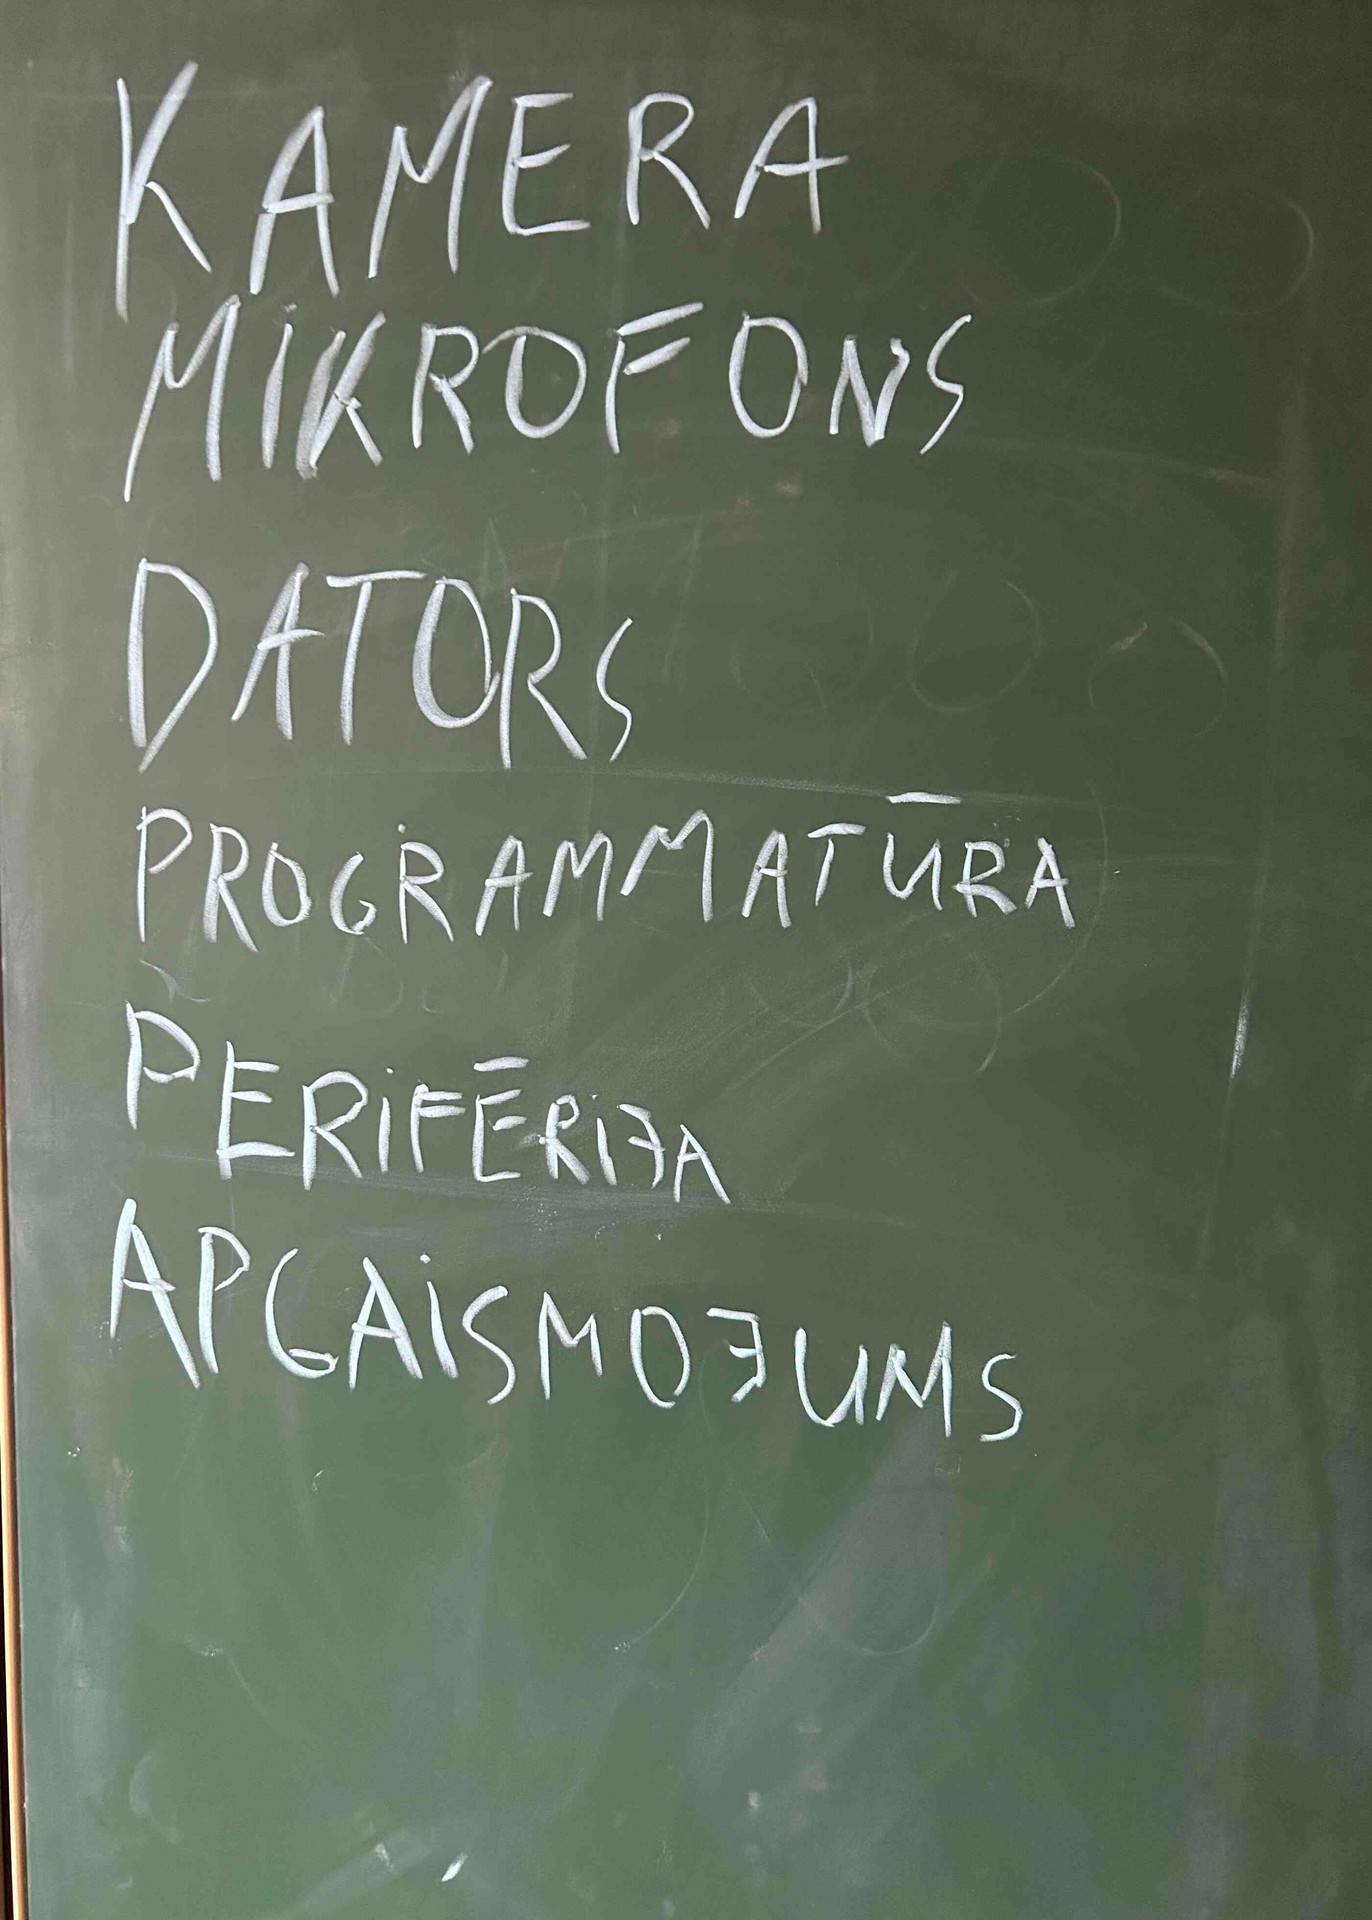 KAMERA
MIKROFONS
DATORS
PROGRAMMATŪRA
PERIFĒRIJA
APGAISMOJUMS